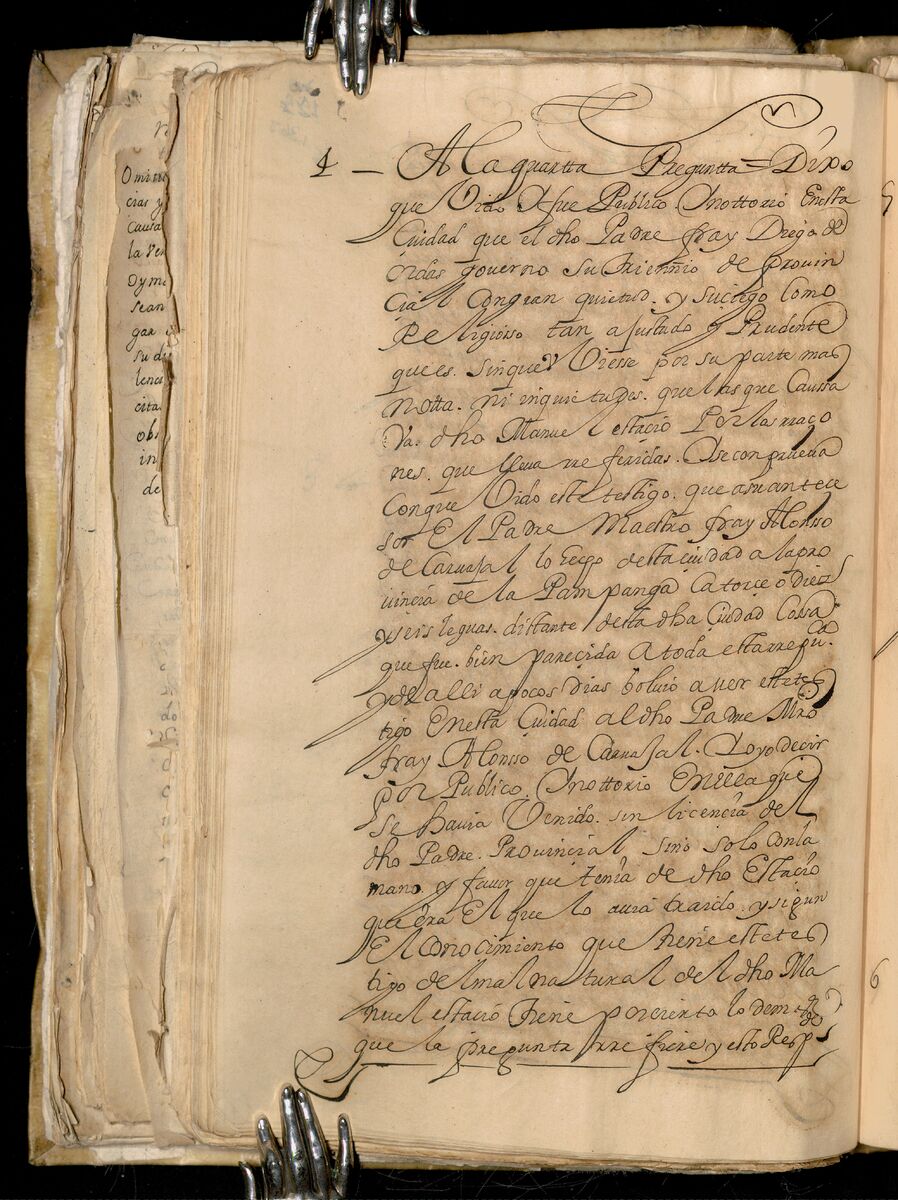 4 — A la quartta Pregunta = Dixo
que Vido. Y fue Publico. Y nottorio En esta
Ciudad que el dho Padre fray Diego de
Ordas governo su triennio de Provin
cial Con gran quietud. y sociego Como
Religiosso tan ajustado y Prudente
que es. sin que Viesse por su parte mas
notta. ni inquietudes. que las que Caussa
Va. dho Manuel estacio Por las raço
nes. que lleva rreferidas. Y se comprueva
Con que Vido este testigo. que a su antece
sor El Padre Maestro fray Alonso
de Caruajal lo hecho desta ciudad a la pro
uincia de la Pampanga Catorce o diez
y seis leguas. distante desta dha Ciudad Cossa
que fue. bien parecida a toda esta rrepu.ca
y de alli a pocos dias boluio a ver este tes
tigo En esta Ciudad al dho Padre Mro
fray Alonso de Caruajal. Y oyo decir
Por Publico. Y nottorio En ella que
se havia Venido. sin licencia del
dho Padre. Provincial sino solo Con la
mano. y favor que tenia de dho Estacio
que era El que lo avia traido. y sigun
El Conocimiento que tiene este tes
tigo del mal natural del dho Ma
nuel estacio tiene por cierto lo demas
que la pregunta rrefiere y esto Resp.e
Omini
cias y
Causa
la Ven
Dyma
sean
gar
su di
lenci
cita
obs
in
de
6